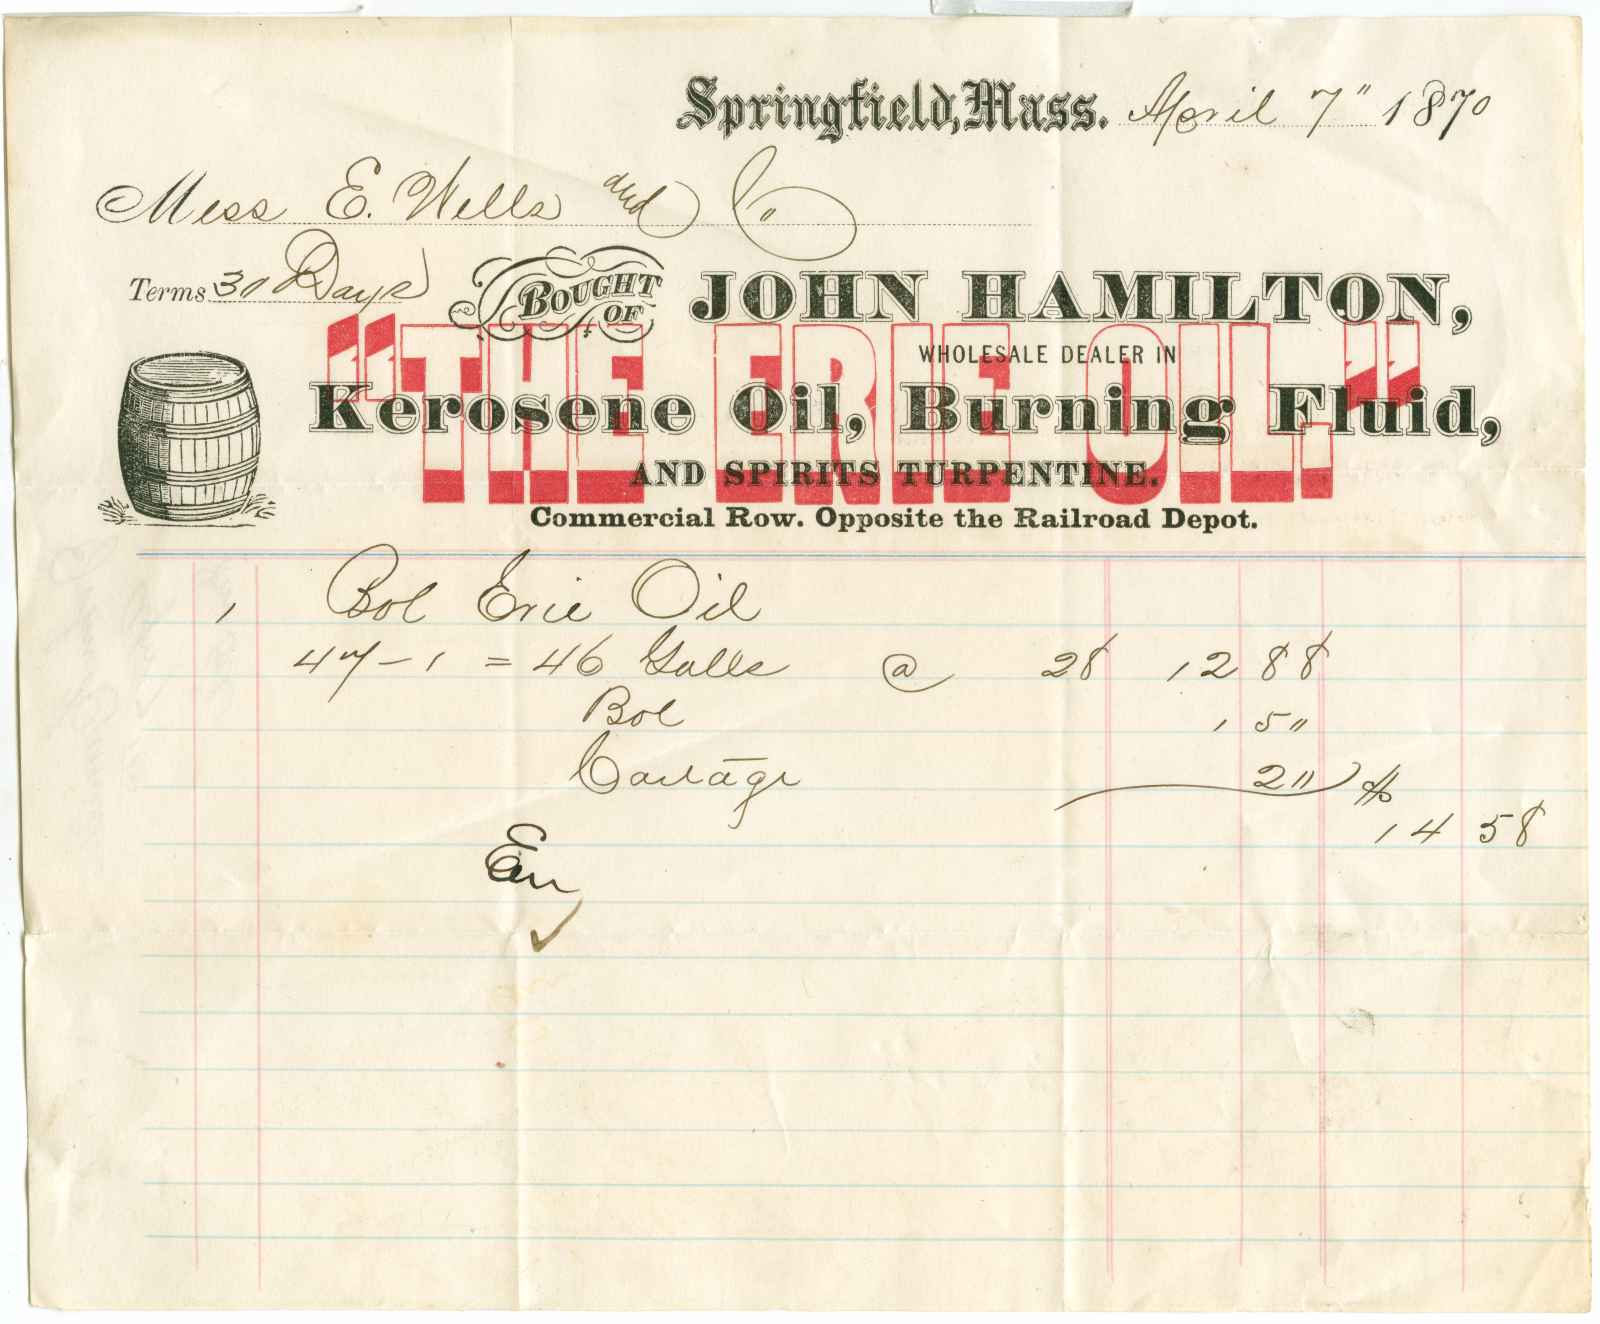 Springfield, Mass. April 7" 1870
Mess E. Wells and Co
Terms 30 Days
BOUGHT OF JOHN HAMILTON,
"THE ERIE OIL."
WHOLESALE DEALER IN
Kerosene Oil, Burning Fluid,
AND SPIRITS TURPENTINE.
Commercial Row. Opposite the Railroad Depot.
1 Bbl Erie Oil
47 - 1 = 46 Galls @ 28 12 88
Bbl 1 5"
Cartage 2" $
14 58